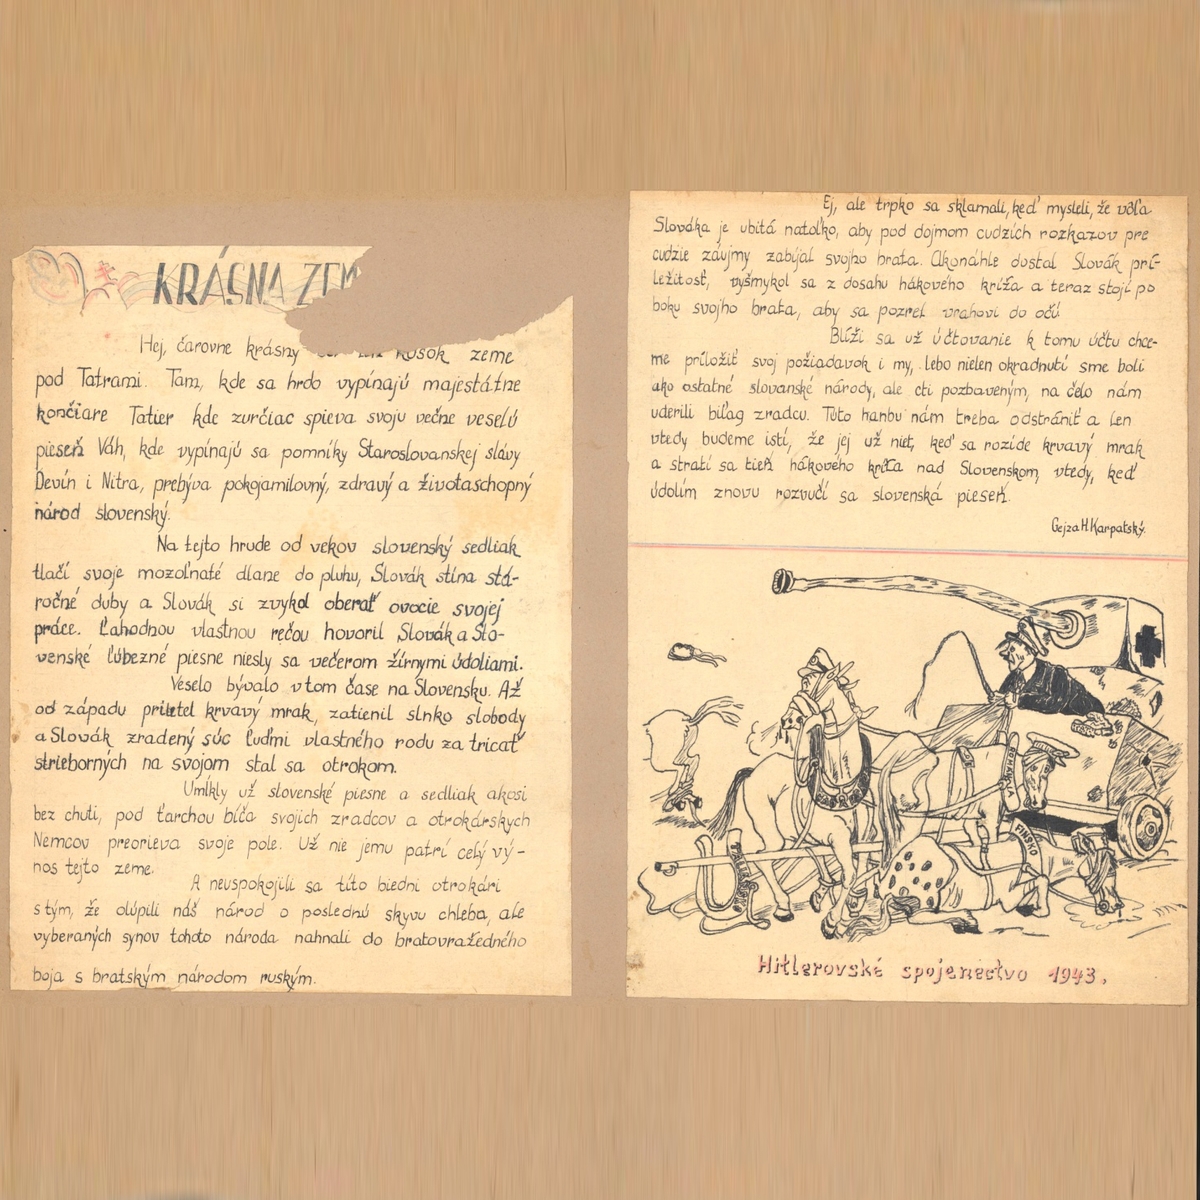 KRÁSNA ZEM
Hej, čarovne krásny kúsok zeme
pod Tatrami. Tam, kde sa hrdo vypínajú majestátne
končiare Tatier kde zurčiac spieva svoju večne veselú
pieseň Váh, kde vypínajú sa pomníky Staroslovanskej slávy
Devín i Nitra, prebýva pokojamilovný, zdravý a životaschopný
národ slovenský.
Na tejto hrude od vekov slovenský sedliak
tlačí svoje mozoľnaté dlane do pluhu, Slovák stína stá-
ročné duby a Slovák si zvykol oberať ovocie svojej
práce. Ľahodnou vlastnou rečou hovoril Slovák a Slo-
venské ľúbezné piesne niesly sa večerom žírnymi údoliami.
Veselo bývalo v tom čase na Slovensku. Až
od západu priletel krvavý mrak, zatienil slnko slobody
a Slovák zradený súc ľuďmi vlastného rodu za tricať
strieborných na svojom stal sa otrokom.
Umĺkly už slovenské piesne a sedliak akosi
bez chuti, pod ťarchou bíča svojich zradcov a otrokárskych
Nemcov preorieva svoje pole. Už nie jemu patrí celý vý-
nos tejto zeme.
A neuspokojili sa títo biedni otrokári
s tým, že olúpili náš národ o poslednú skyvu chleba, ale
vyberaných synov tohoto národa nahnali do bratovražedného
boja s bratským národom ruským.
Ej, ale trpko sa sklamali, keď mysleli, že vôľa
Slováka je ubitá natoľko, aby pod dojmom cudzích rozkazov pre
cudzie záujmy zabíjal svojho brata. Akonáhle dostal Slovák prí-
ležitosť, vyšmykol sa z dosahu hákového kríža a teraz stojí po
boku svojho brata, aby sa pozrel vrahovi do očú
Blíži sa už účtovanie k tomu účtu chce-
me priložiť svoj požiadavok i my, lebo nielen okradnutí sme boli
ako ostatné slovanské národy, ale cti pozbaveným, na čelo nám
uderili biľag zradcu. Túto hanbu nám treba odstrániť a len
vtedy budeme istí, že jej už niet, keď sa rozíde krvavý mrak
a stratí sa tieň hákového kríža nad Slovenskom, vtedy, keď
údolím znovu rozvučí sa slovenská pieseň.
Gejza H. Karpatský.
FINSKO
Hitlerovské spojenectvo 1943.